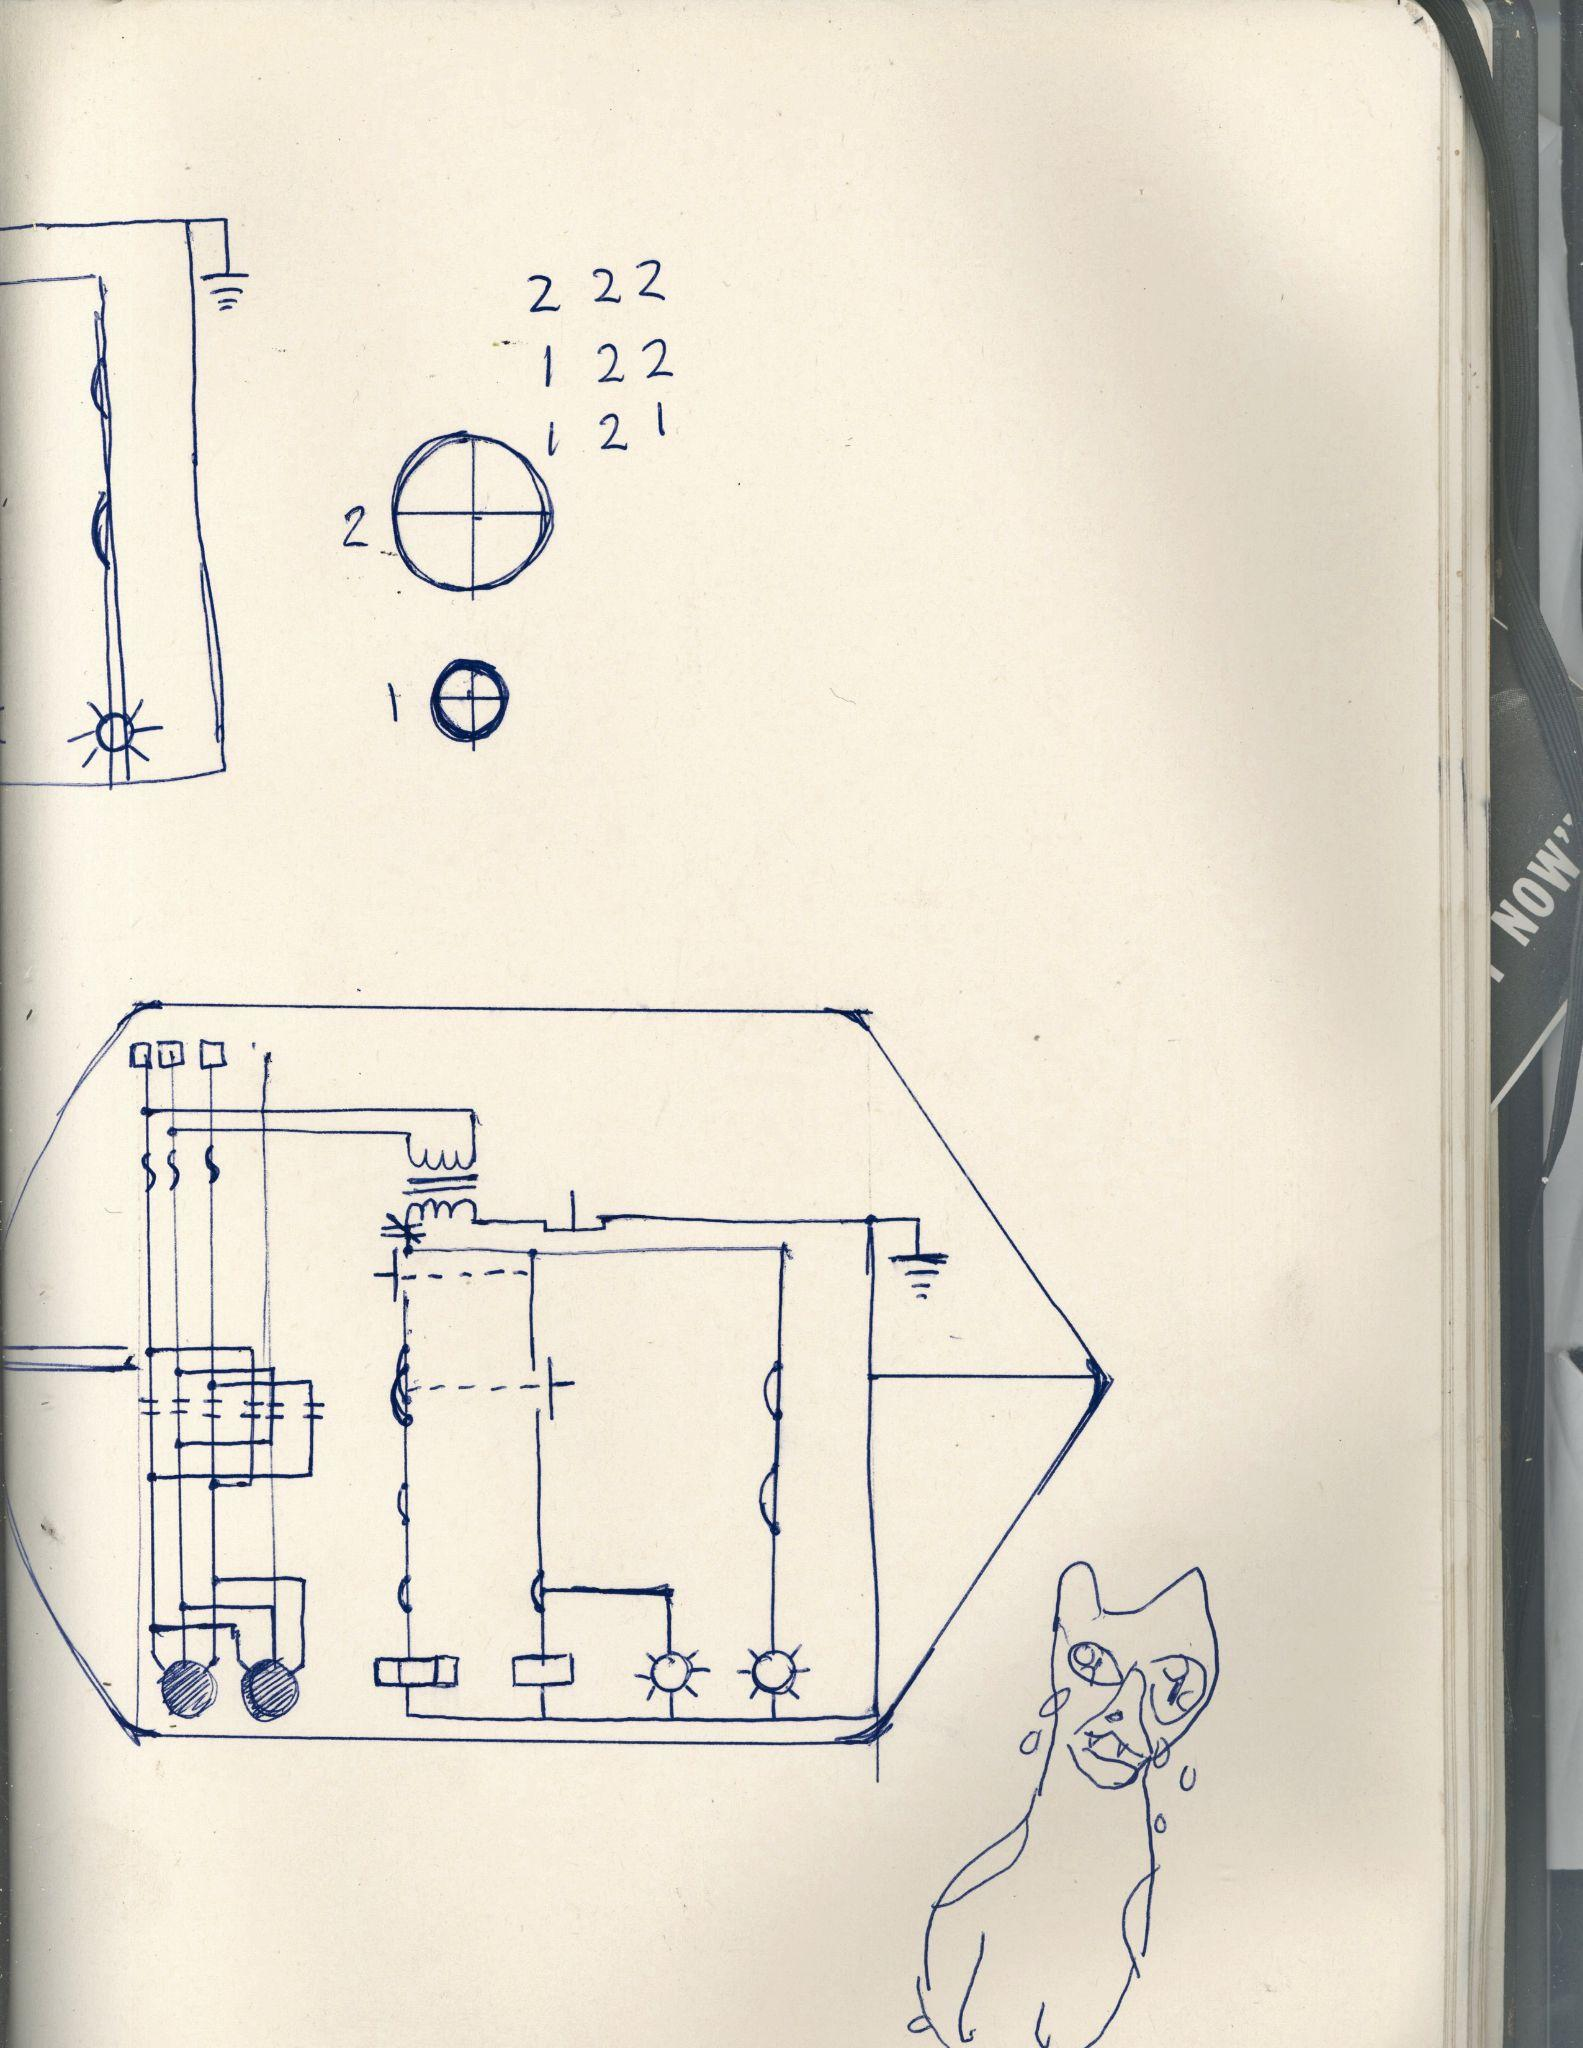 2 2 2
1 2 2
1 2 1
2
1
NOW"